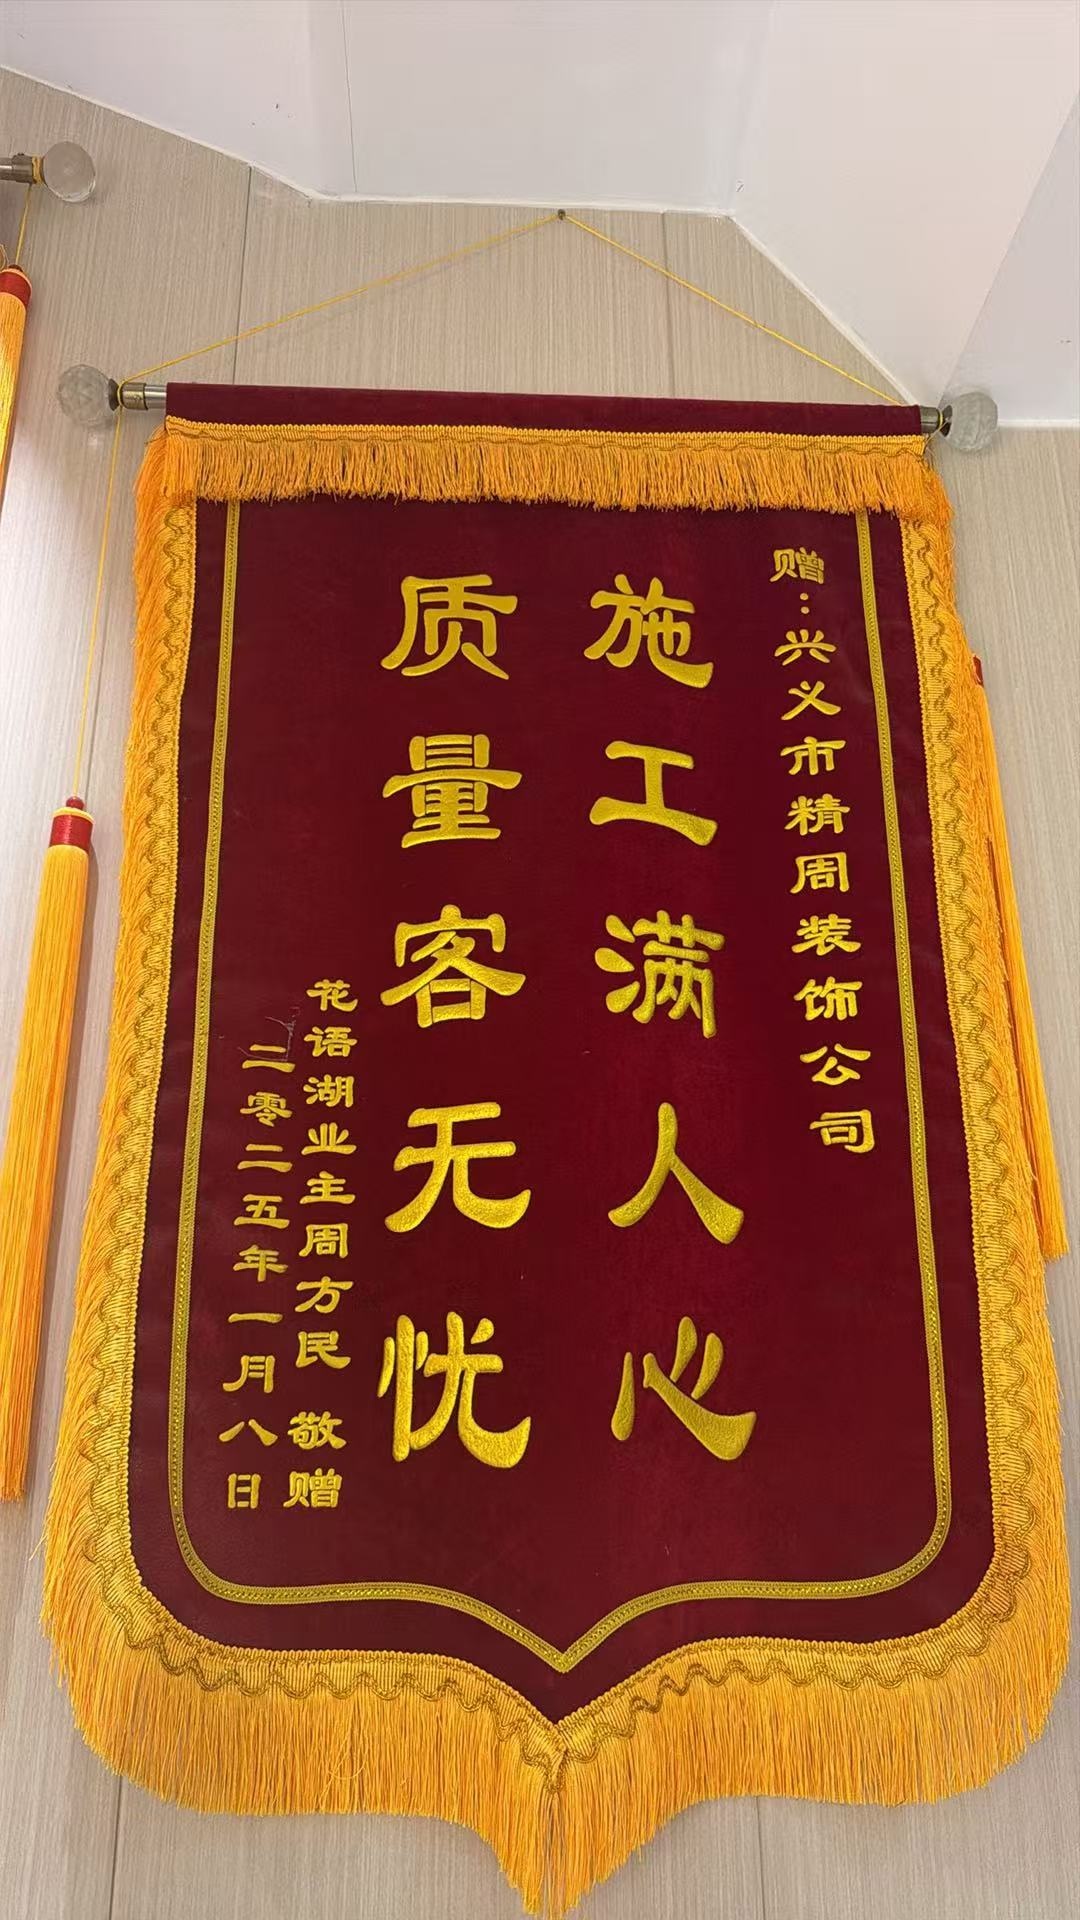 赠：兴义市精周装饰公司
施工满人心
质量客无忧
花语湖业主周方民 敬赠
二零二五年一月八日